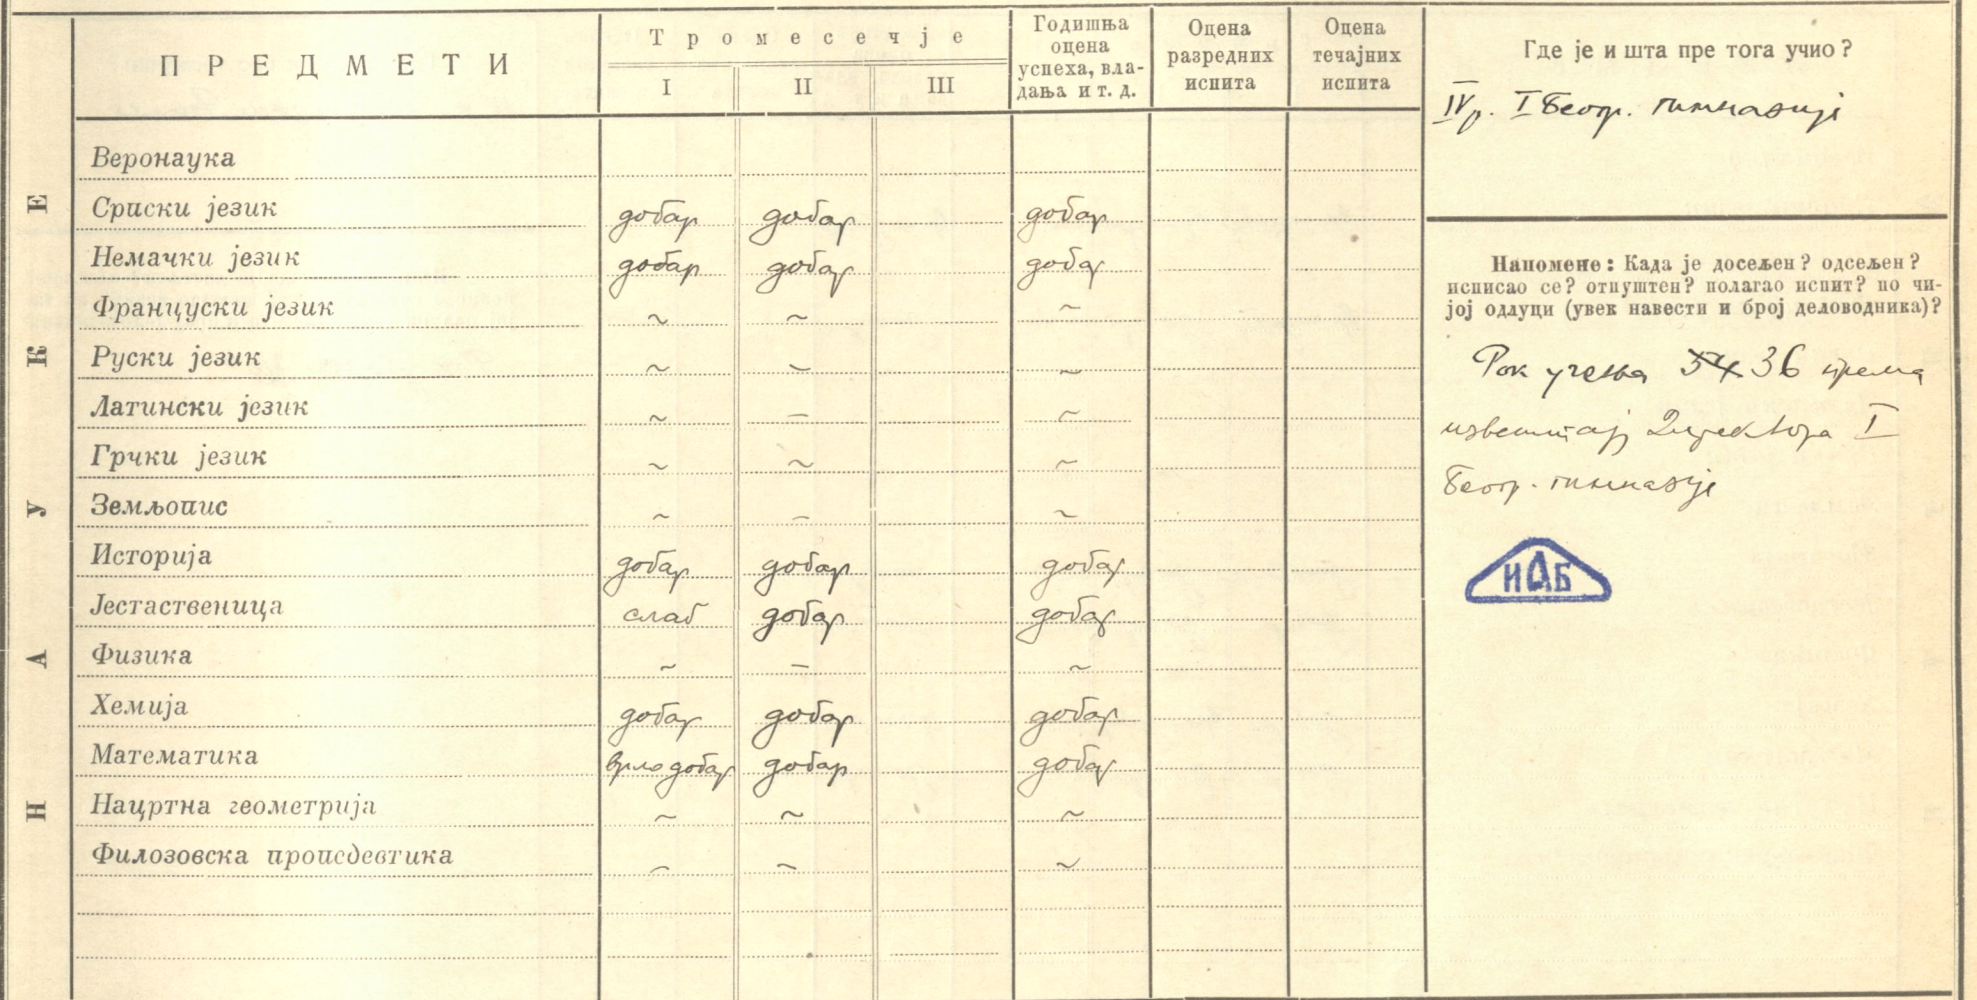 ПРЕДМЕТИ
Тромесечје
I II III
Годишња
оцена
успеха, вла-
дања и т. д.
Оцена
разредних
испита
Оцена
течајних
испита
Где је и шта пре тога учио?
IV р. I Беогр. гимназије
НАУКЕ
Веронаука
Српски језик добар добар добар
Немачки језик добар добар добар
Француски језик ~ ~ ~
Руски језик ~ ~ ~
Латински језик ~ – ~
Грчки језик ~ ~ ~
Земљопис ~ – ~
Историја добар добар добар
Јестаственица слаб добар добар
Физика ~ – ~
Хемија добар добар добар
Математика врло добар добар добар
Нацртна геометрија ~ ~ ~
Филозовска пропедевтика ~ ~ ~
Напомене: Када је досељен? одсељен?
исписао се? отпуштен? полагао испит? по чи-
јој одлуци (увек навести и број деловодника)?
Рок учења 36 према
извештају Директора I
Беогр. гимназије
ИАБ